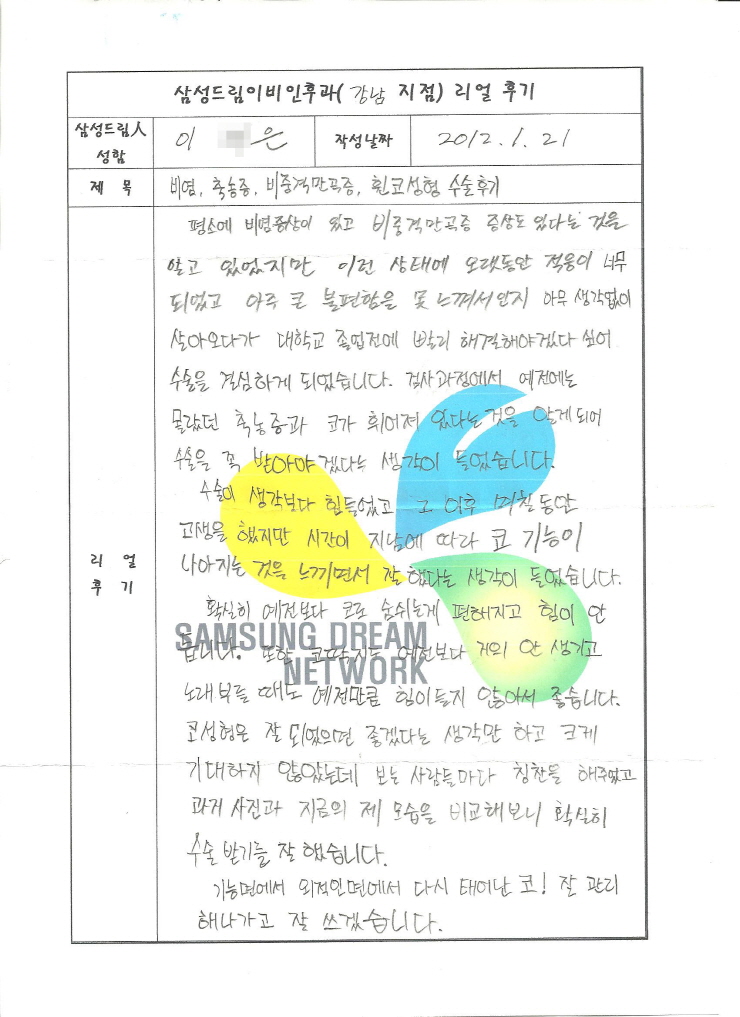 삼성드림이비인후과( 강남 지점) 리얼 후기
삼성드림人 성함 이 은 작성날짜 2012. 1. 21
제 목 비염, 축농증, 비중격만곡증, 휜코성형 수술후기
리 얼 후 기
평소에 비염증상이 있고 비중격만곡증 증상도 있다는 것을
알고 있었지만 이런 상태에 오랫동안 적응이 너무
되었고 아주 큰 불편함을 못 느껴서인지 아무 생각없이
살아오다가 대학교 졸업전에 빨리 해결해야겠다 싶어
수술을 결심하게 되었습니다. 검사과정에서 예전에는
몰랐던 축농증과 코가 휘어져 있다는 것을 알게되어
수술을 꼭 받아야겠다는 생각이 들었습니다.
수술이 생각보다 힘들었고 그 이후 며칠동안
고생을 했지만 시간이 지남에 따라 코 기능이
나아지는 것을 느끼면서 잘 했다는 생각이 들었습니다.
확실히 예전보다 코로 숨쉬는게 편해지고 힘이 안
듭니다. 또한 코딱지도 예전보다 거의 안 생기고
노래부를 때도 예전만큼 힘이들지 않아서 좋습니다.
코성형은 잘 되었으면 좋겠다는 생각만 하고 크게
기대하지 않았는데 보는 사람들마다 칭찬을 해주었고
과거 사진과 지금의 제 모습을 비교해보니 확실히
수술 받기를 잘 했습니다.
기능면에서 외적인면에서 다시 태어난 코! 잘 관리
해나가고 잘 쓰겠습니다.
SAMSUNG DREAM
NETWORK